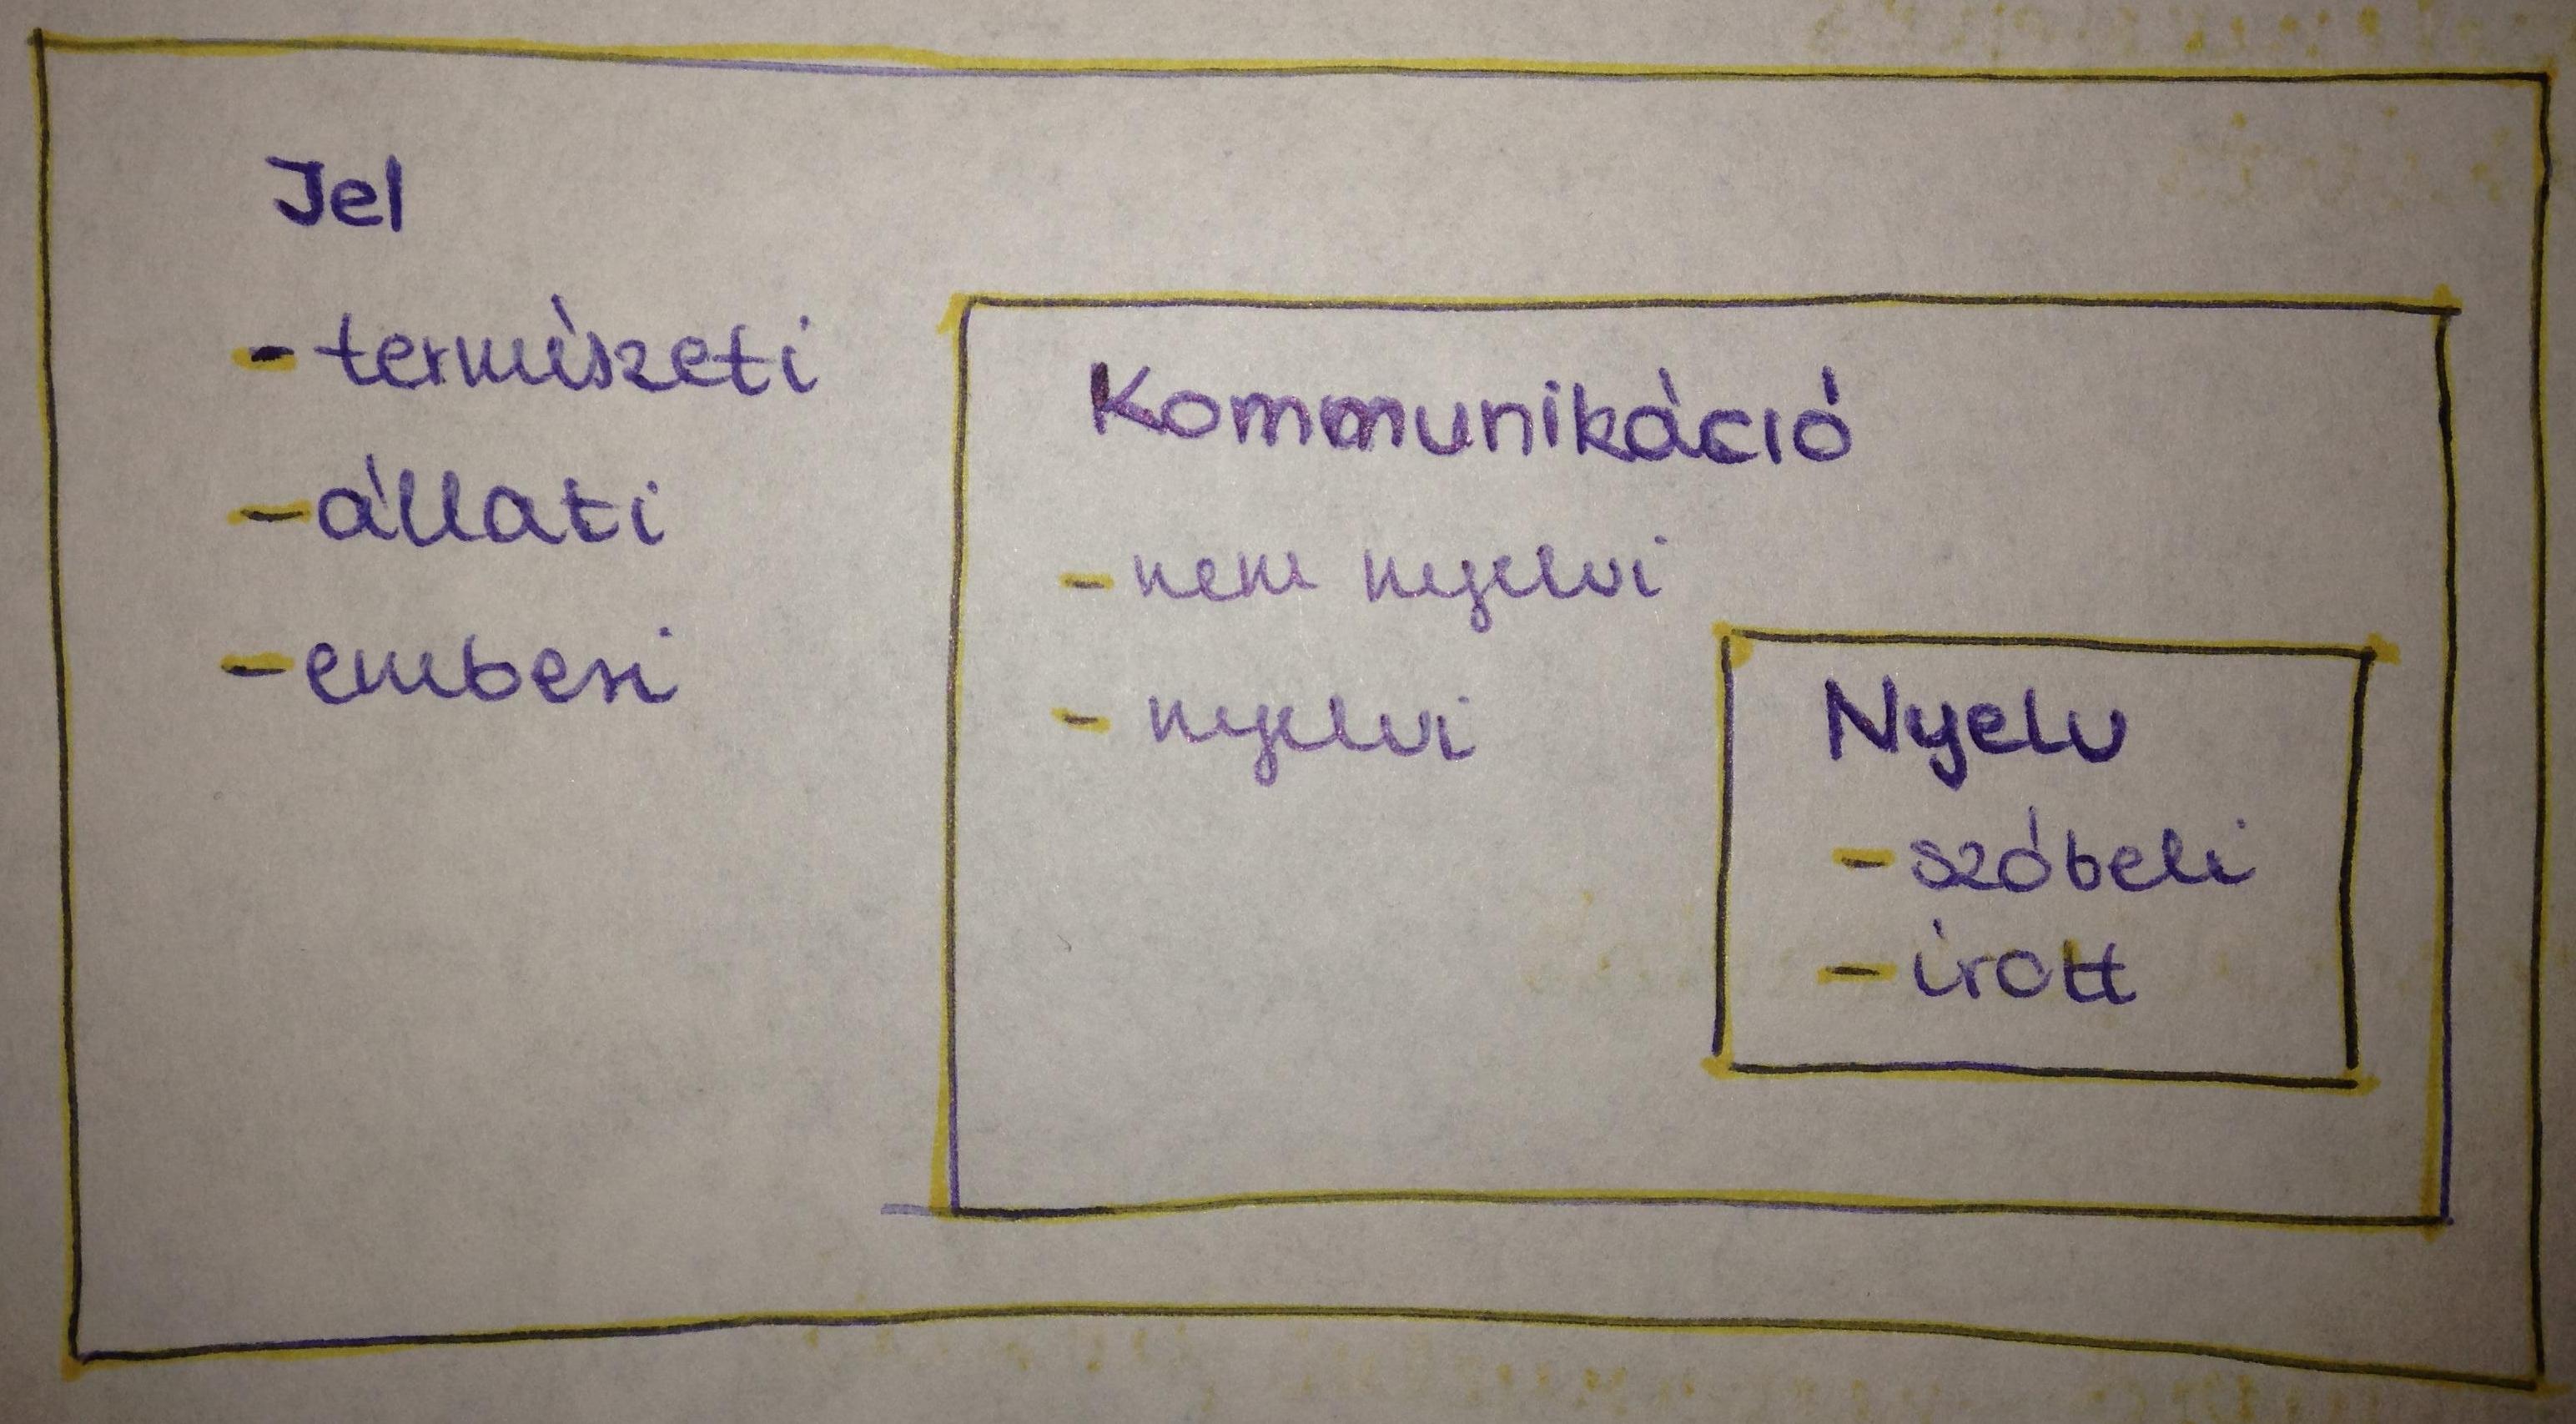 Jel
- természeti
- állati
- emberi
Kommunikáció
- nem nyelvi
- nyelvi
Nyelv
- szóbeli
- írott